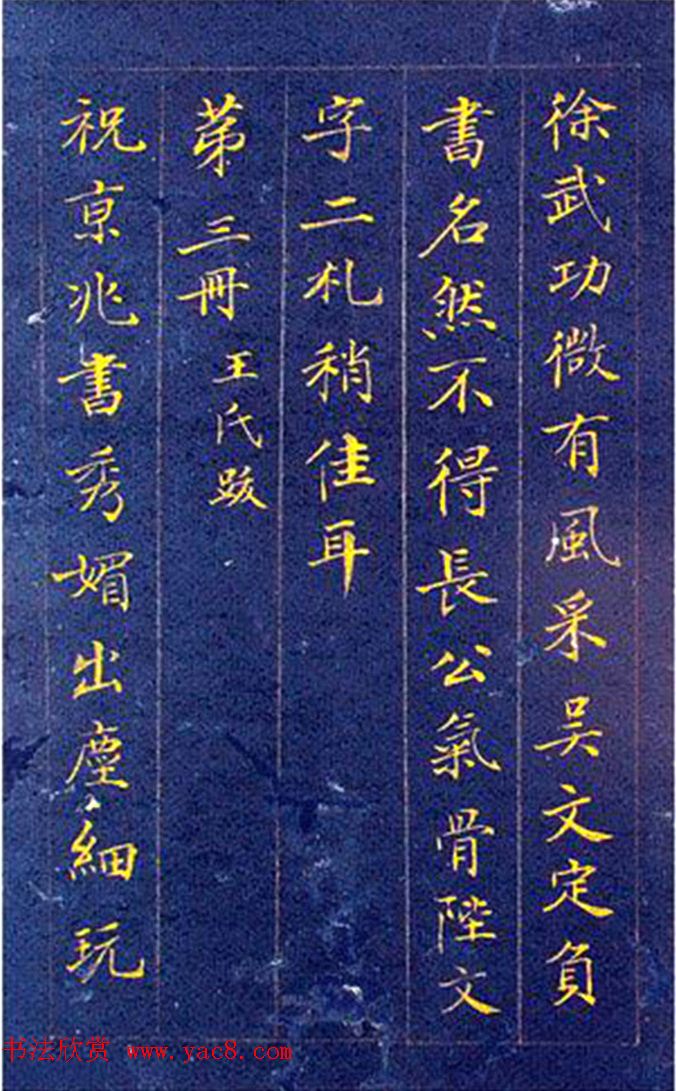 徐武功微有風采吴文定負
書名然不得長公氣骨陛文
字二札稍佳耳
苐三冊 王氏跋
祝京兆書秀媚出塵細玩
书法欣赏 www.yac8.com